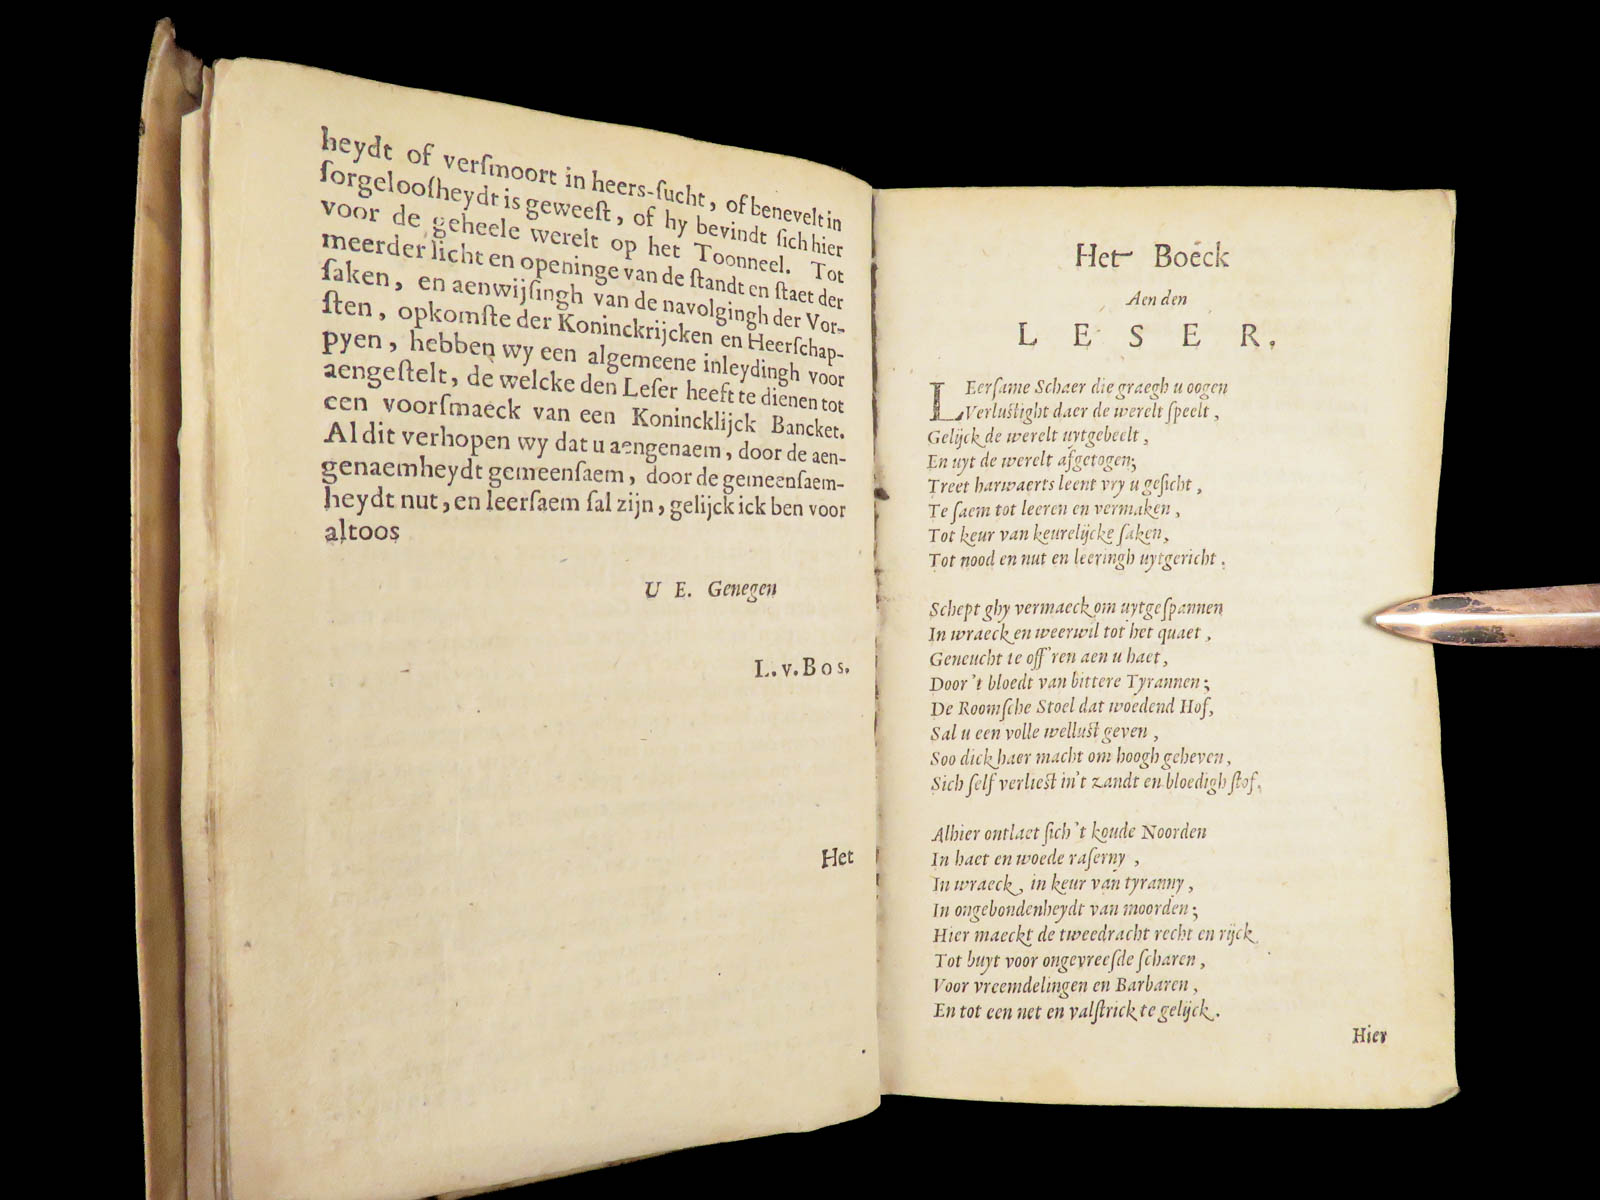 heydt of verſmoort in heers-ſucht, of benevelt in
ſorgelooſheydt is geweeſt, of hy bevindt ſich hier
voor de geheele werelt op het Toonneel. Tot
meerder licht en openinge van de ſtandt en ſtaet der
ſaken, en aenwijſingh van de navolgingh der Vor-
ſten, opkomſte der Koninckrijcken en Heerſchap-
pyen, hebben wy een algemeene inleydingh voor
aengeſtelt, de welcke den Leſer heeft te dienen tot
een voorſmaeck van een Konincklijck Bancket.
Al dit verhopen wy dat u aengenaem, door de aen-
genaemheydt gemeenſaem, door de gemeenſaem-
heydt nut, en leerſaem ſal zijn, gelijck ick ben voor
altoos
U E. Genegen
L. v. Bos.
Het
Het Boeck
Aen den
LESER.
LEerſame Schaer die graegh u oogen
Verluſtight daer de werelt ſpeelt,
Gelijck de werelt uytgebeelt,
En uyt de werelt afgetogen;
Treet harwaerts leent vry u geſicht,
Te ſaem tot leeren en vermaken,
Tot keur van keurelijcke ſaken,
Tot nood en nut en leeringh uytgericht.
Schept ghy vermaeck om uytgeſpannen
In wraeck en weerwil tot het quaet,
Geneucht te off'ren aen u haet,
Door 't bloedt van bittere Tyrannen;
De Roomſche Stoel dat woedend Hof,
Sal u een volle welluſt geven,
Soo dick haer macht om hoogh geheven,
Sich ſelf verlieſt in't zandt en bloedigh ſtof.
Alhier ontlaet ſich 't koude Noorden
In haet en woede raſerny,
In wraeck, in keur van tyranny,
In ongebondenheydt van moorden;
Hier maeckt de tweedracht recht en rijck
Tot buyt voor ongevreeſde ſcharen,
Voor vreemdelingen en Barbaren,
En tot een net en valſtrick te gelijck.
Hier